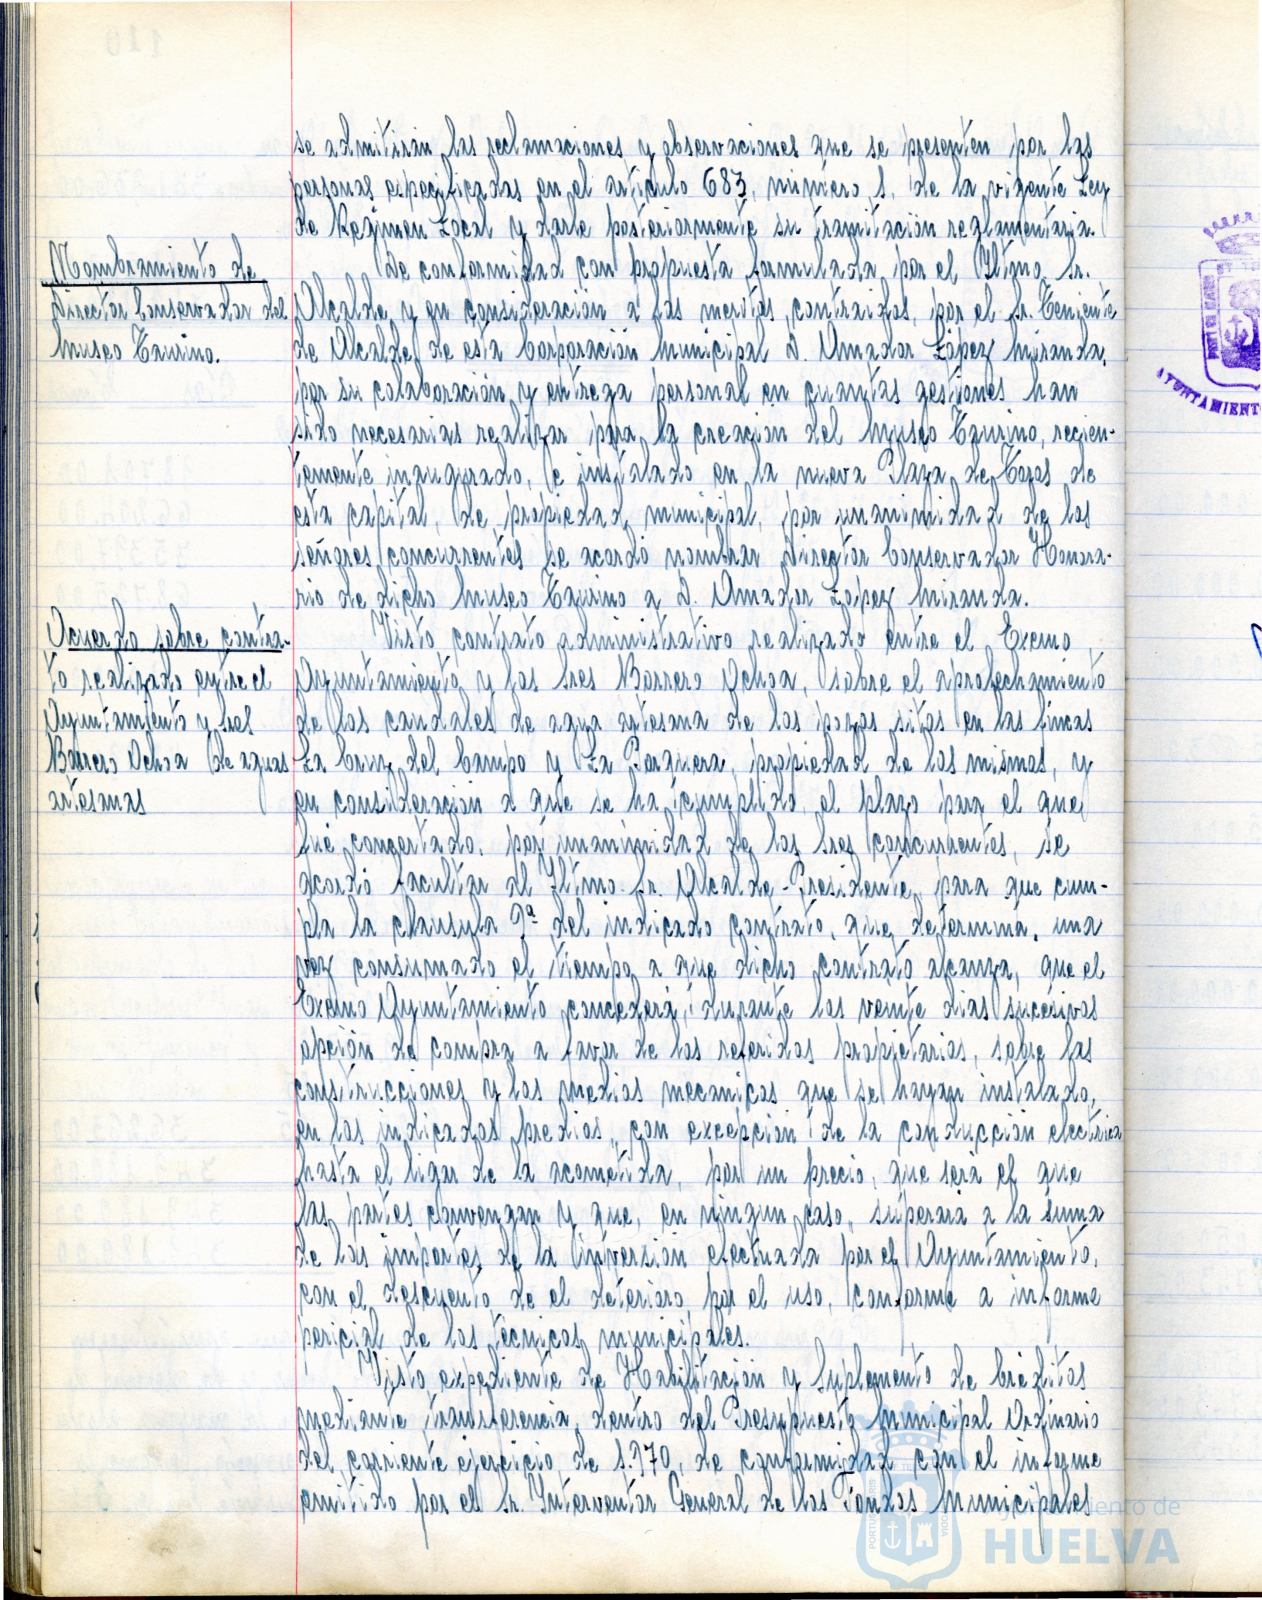 se admitirán las reclamaciones y observaciones que se presenten por las
personas especificadas en el artículo 683, número 1, de la vigente Ley
de Régimen Local y darle posteriormente su tramitación reglamentaria.
Nombramiento de
Director Conservador del
Museo Taurino.
De conformidad con propuesta formulada por el Iltmo. Sr.
Alcalde y en consideración a los meritos contraidos, por el Sr. Teniente
de Alcalde de esta Corporación Municipal D. Amador López Miranda,
por su colaboración y entrega personal en cuantas gestiones han
sido necesarias realizar para la creación del Museo Taurino, recien-
temente inaugurado, e instalado en la nueva Plaza de Toros de
esta capital, de propiedad municipal, por unanimidad de los
señores concurrentes se acordó nombrar Director Conservador Honora-
rio de dicho Museo Taurino a D. Amador López Miranda.
Acuerdo sobre contra-
to realizado entre el
Ayuntamiento y Sres
Barrero Ochoa de aguas
artesanas
Visto contrato administrativo realizado entre el Excmo
Ayuntamiento y los Sres Barrero Ochoa, sobre el aprobechamiento
de los caudales de agua artesana de los pozos sitos en las fincas
La Cruz del Campo y La Porquera, propiedad de los mismos, y
en consideración a que se ha cumplido, el plazo para el que
fué concertado, por unanimidad de los Sres concurrentes, se
acordó facultar al Iltmo. Sr. Alcalde-Presidente, para que cum-
pla la clausula 9ª del indicado contrato, que determina, una
vez consumado el tiempo a que dicho contrato alcanza, que el
Excmo Ayuntamiento concederá, durante los veinte dias sucesivos
opción de compra a favor de los referidos propietarios, sobre las
construcciones y los medios mecanicos que se hayan instalado,
en los indicados predios, con excepción de la conducción electrica
hasta el lugar de la acometida, por un precio, que será el que
las partes convengan y que, en ningun caso, superará a la suma
de los importes de la inversión efectuada por el Ayuntamiento,
con el descuento de el deterioro por el uso, conforme a informe
pericial de los técnicos municipales.
Visto expediente de Habilitación y Suplemento de Créditos
mediante transferencia, dentro del Presupuesto Municipal Ordinario
del corriente ejercicio de 1.970, de conformidad con el informe
emitido por el Sr. Interventor General de los Fondos Municipales
AYUNTAMIENTO
Ayuntamiento de
HUELVA